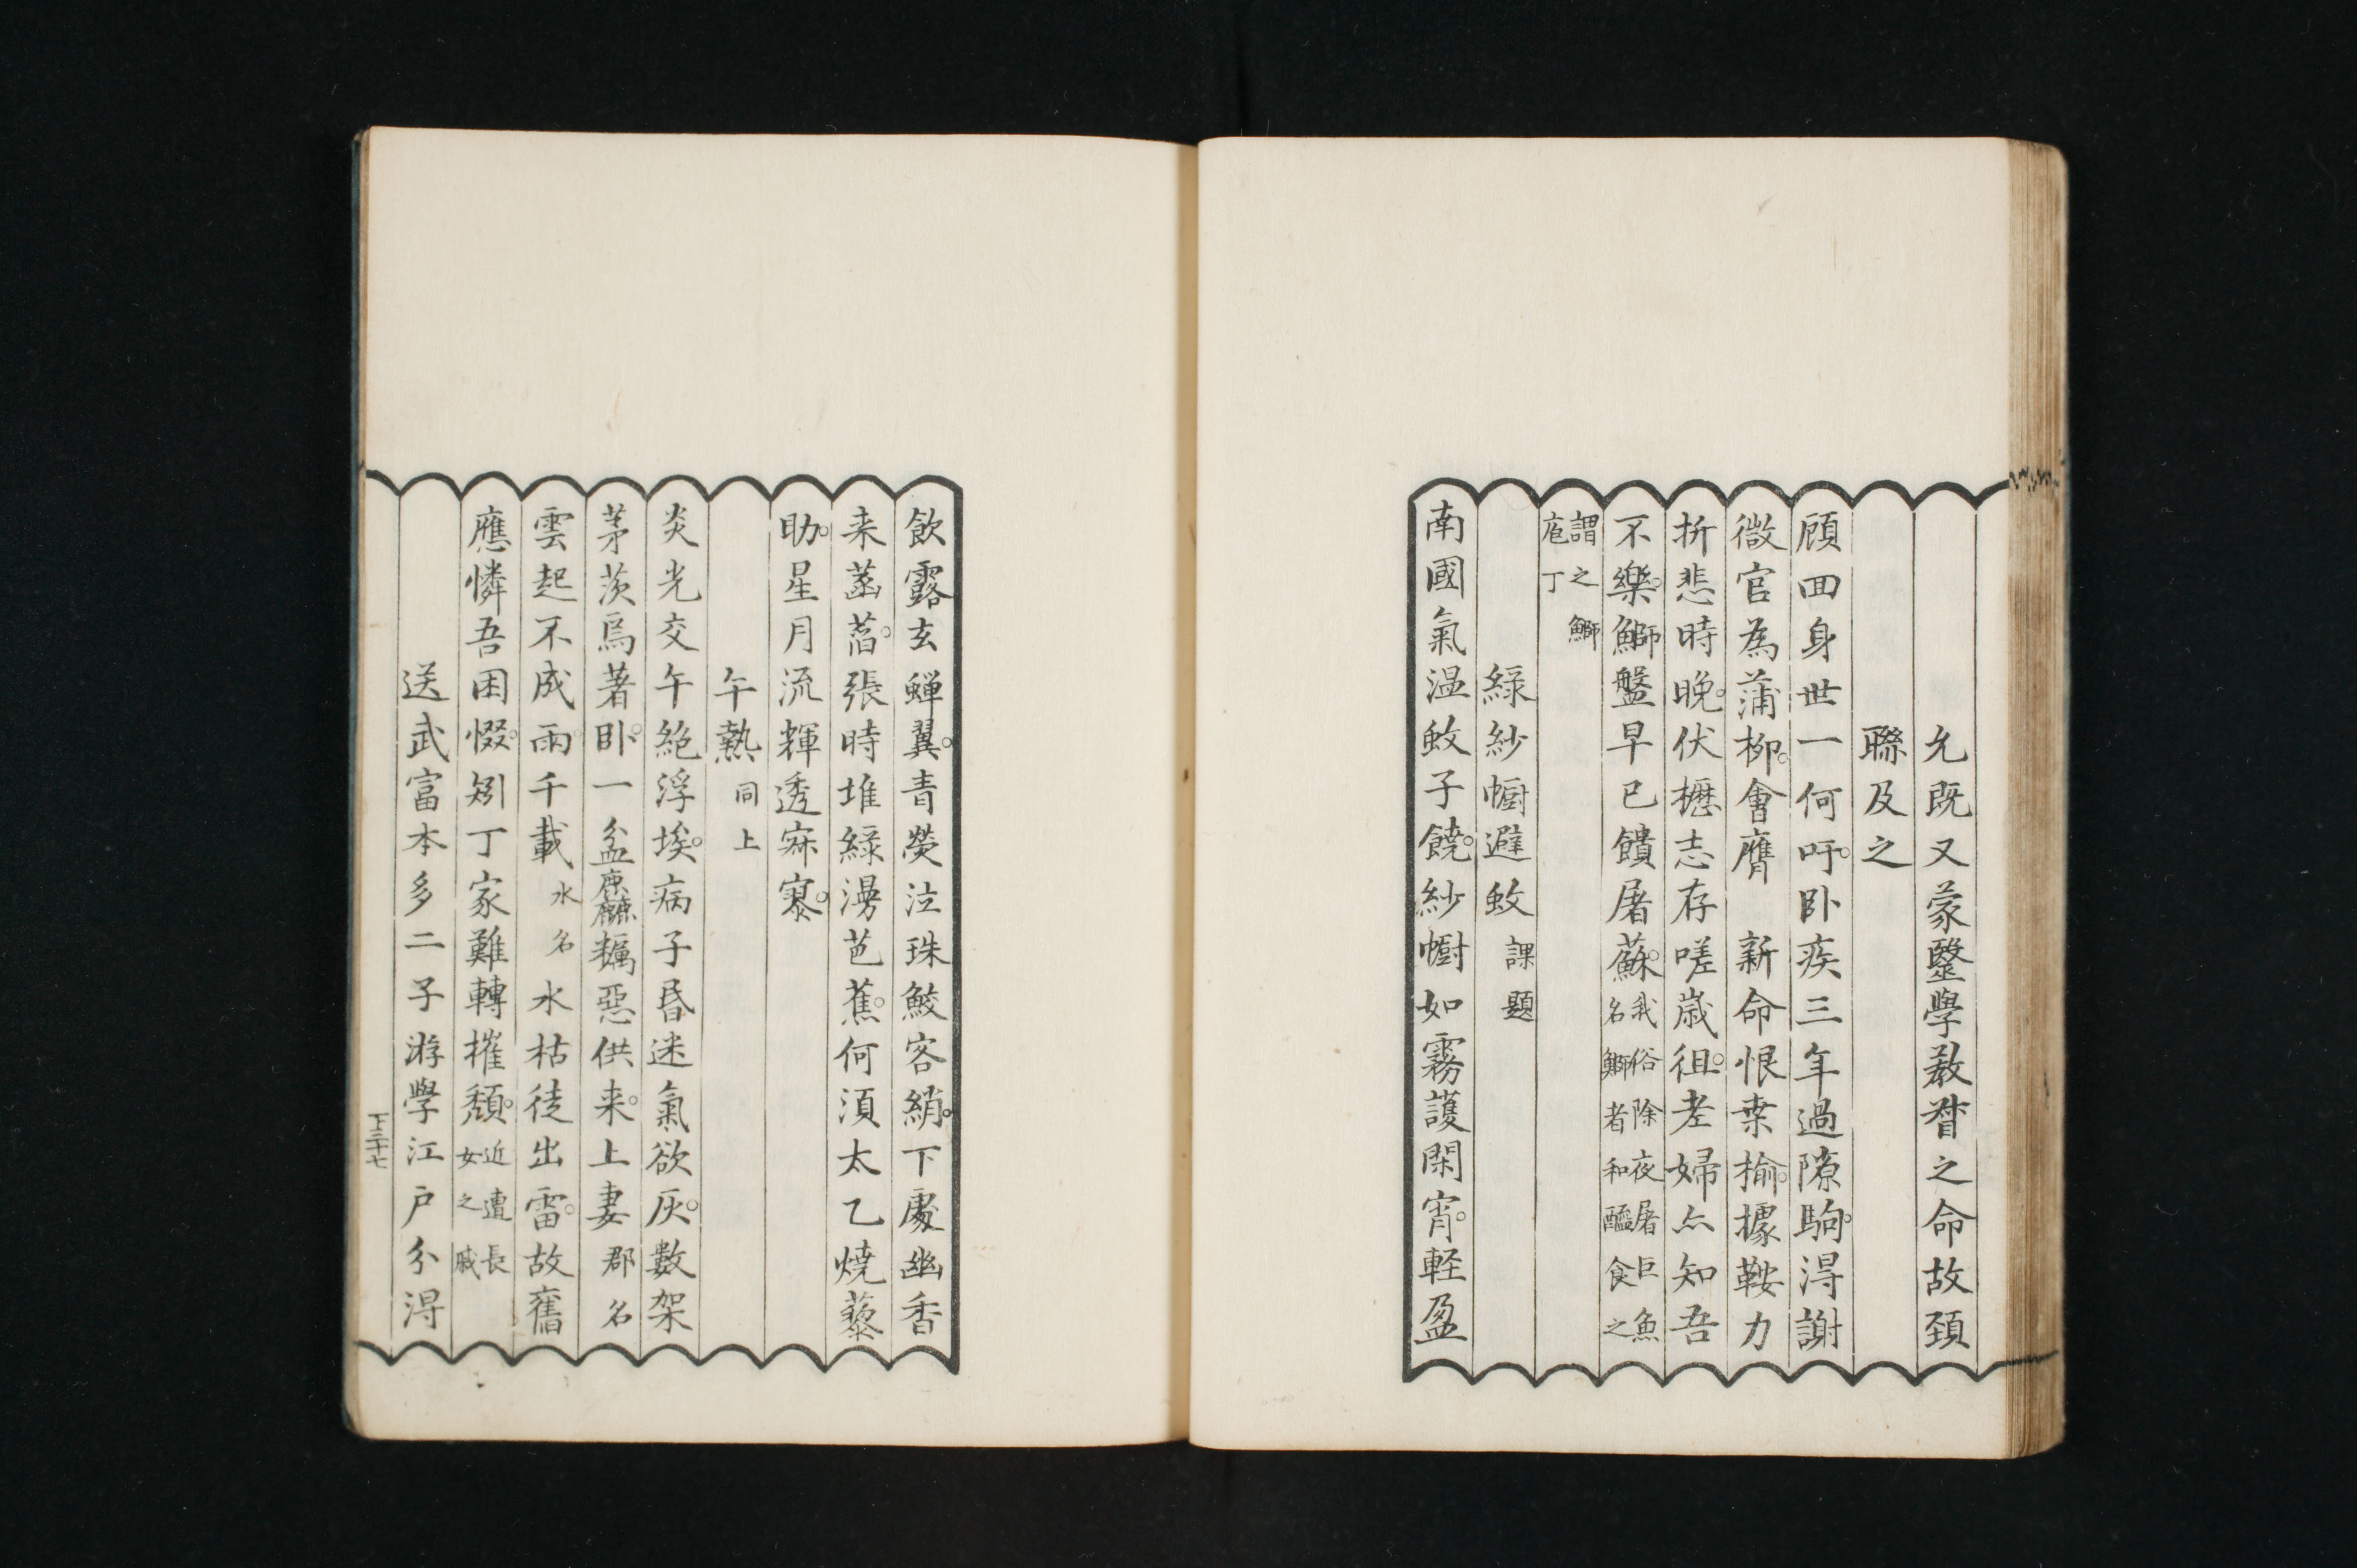 允既又蒙毉學教督之命故頚
聯及之
顧回身世一何吁卧疾三年過隙駒淂謝
微官為蒲柳會膺　新命恨桒榆據鞍力
折悲時晩伏櫪志存嗟歳徂老婦亦知吾
不樂鰤盤早已饋屠蘇我俗除夜屠巨魚
名鰤者和醢食之
謂之鰤
庖丁
緑紗幮避蚊課題
南國氣温蚊子饒紗幮如霧護閑宵軽盈
飲露玄蝉翼青熒泣珠鮫客綃下處幽香
来菡萏張時堆緑漫芭蕉何須太乙焼藜
助星月流輝透寂寥
午熱同上
炎光交午絶浮埃病子昏迷氣欲灰數架
茅茨烏著卧一盆麤糲惡供来上妻郡名
雲起不成雨千載水名水枯徒出雷故舊
應憐吾困惙矧丁家難轉摧頽近遭長
女之戚
送武富本多二子游學江戸分淂
下三十七